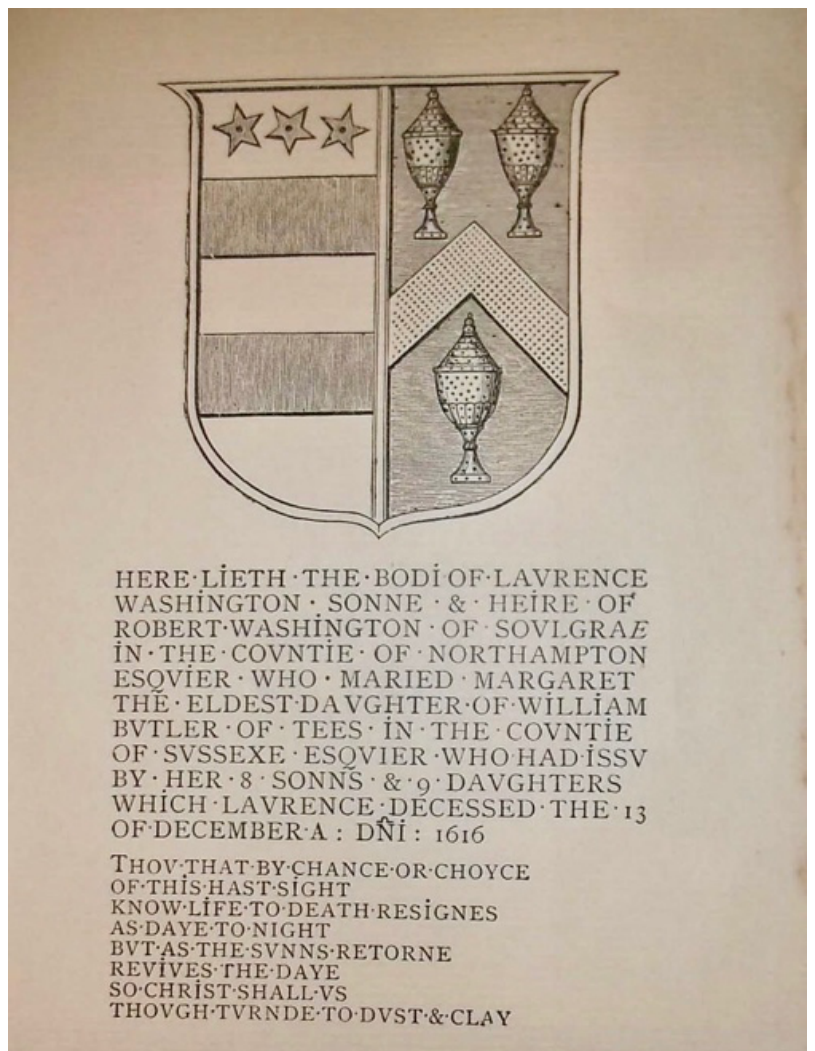 HERE·LİETH·THE·BODİ·OF·LAVRENCE
WASHİNGTON·SONNE·&·HEİRE·OF
ROBERT·WASHİNGTON·OF·SOVLGRAE
İN·THE·COVNTİE·OF·NORTHAMPTON
ESQVİER·WHO·MARİED·MARGARET
THE·ELDEST·DAVGHTER·OF·WİLLİAM
BVTLER·OF·TEES·İN·THE·COVNTİE
OF·SVSSEXE·ESQVİER·WHO·HAD·İSSV
BY·HER·8·SONNS·&·9·DAVGHTERS
WHİCH·LAVRENCE·DECESSED·THE·13
OF·DECEMBER·A : DÑİ : 1616
THOV·THAT·BY·CHANCE·OR·CHOYCE
OF·THİS·HAST·SİGHT
KNOW·LİFE·TO·DEATH·RESİGNES
AS·DAYE·TO·NİGHT
BVT·AS·THE·SVNNS·RETORNE
REVİVES·THE·DAYE
SO·CHRİST·SHALL·VS
THOVGH·TVRNDE·TO·DVST·&·CLAY